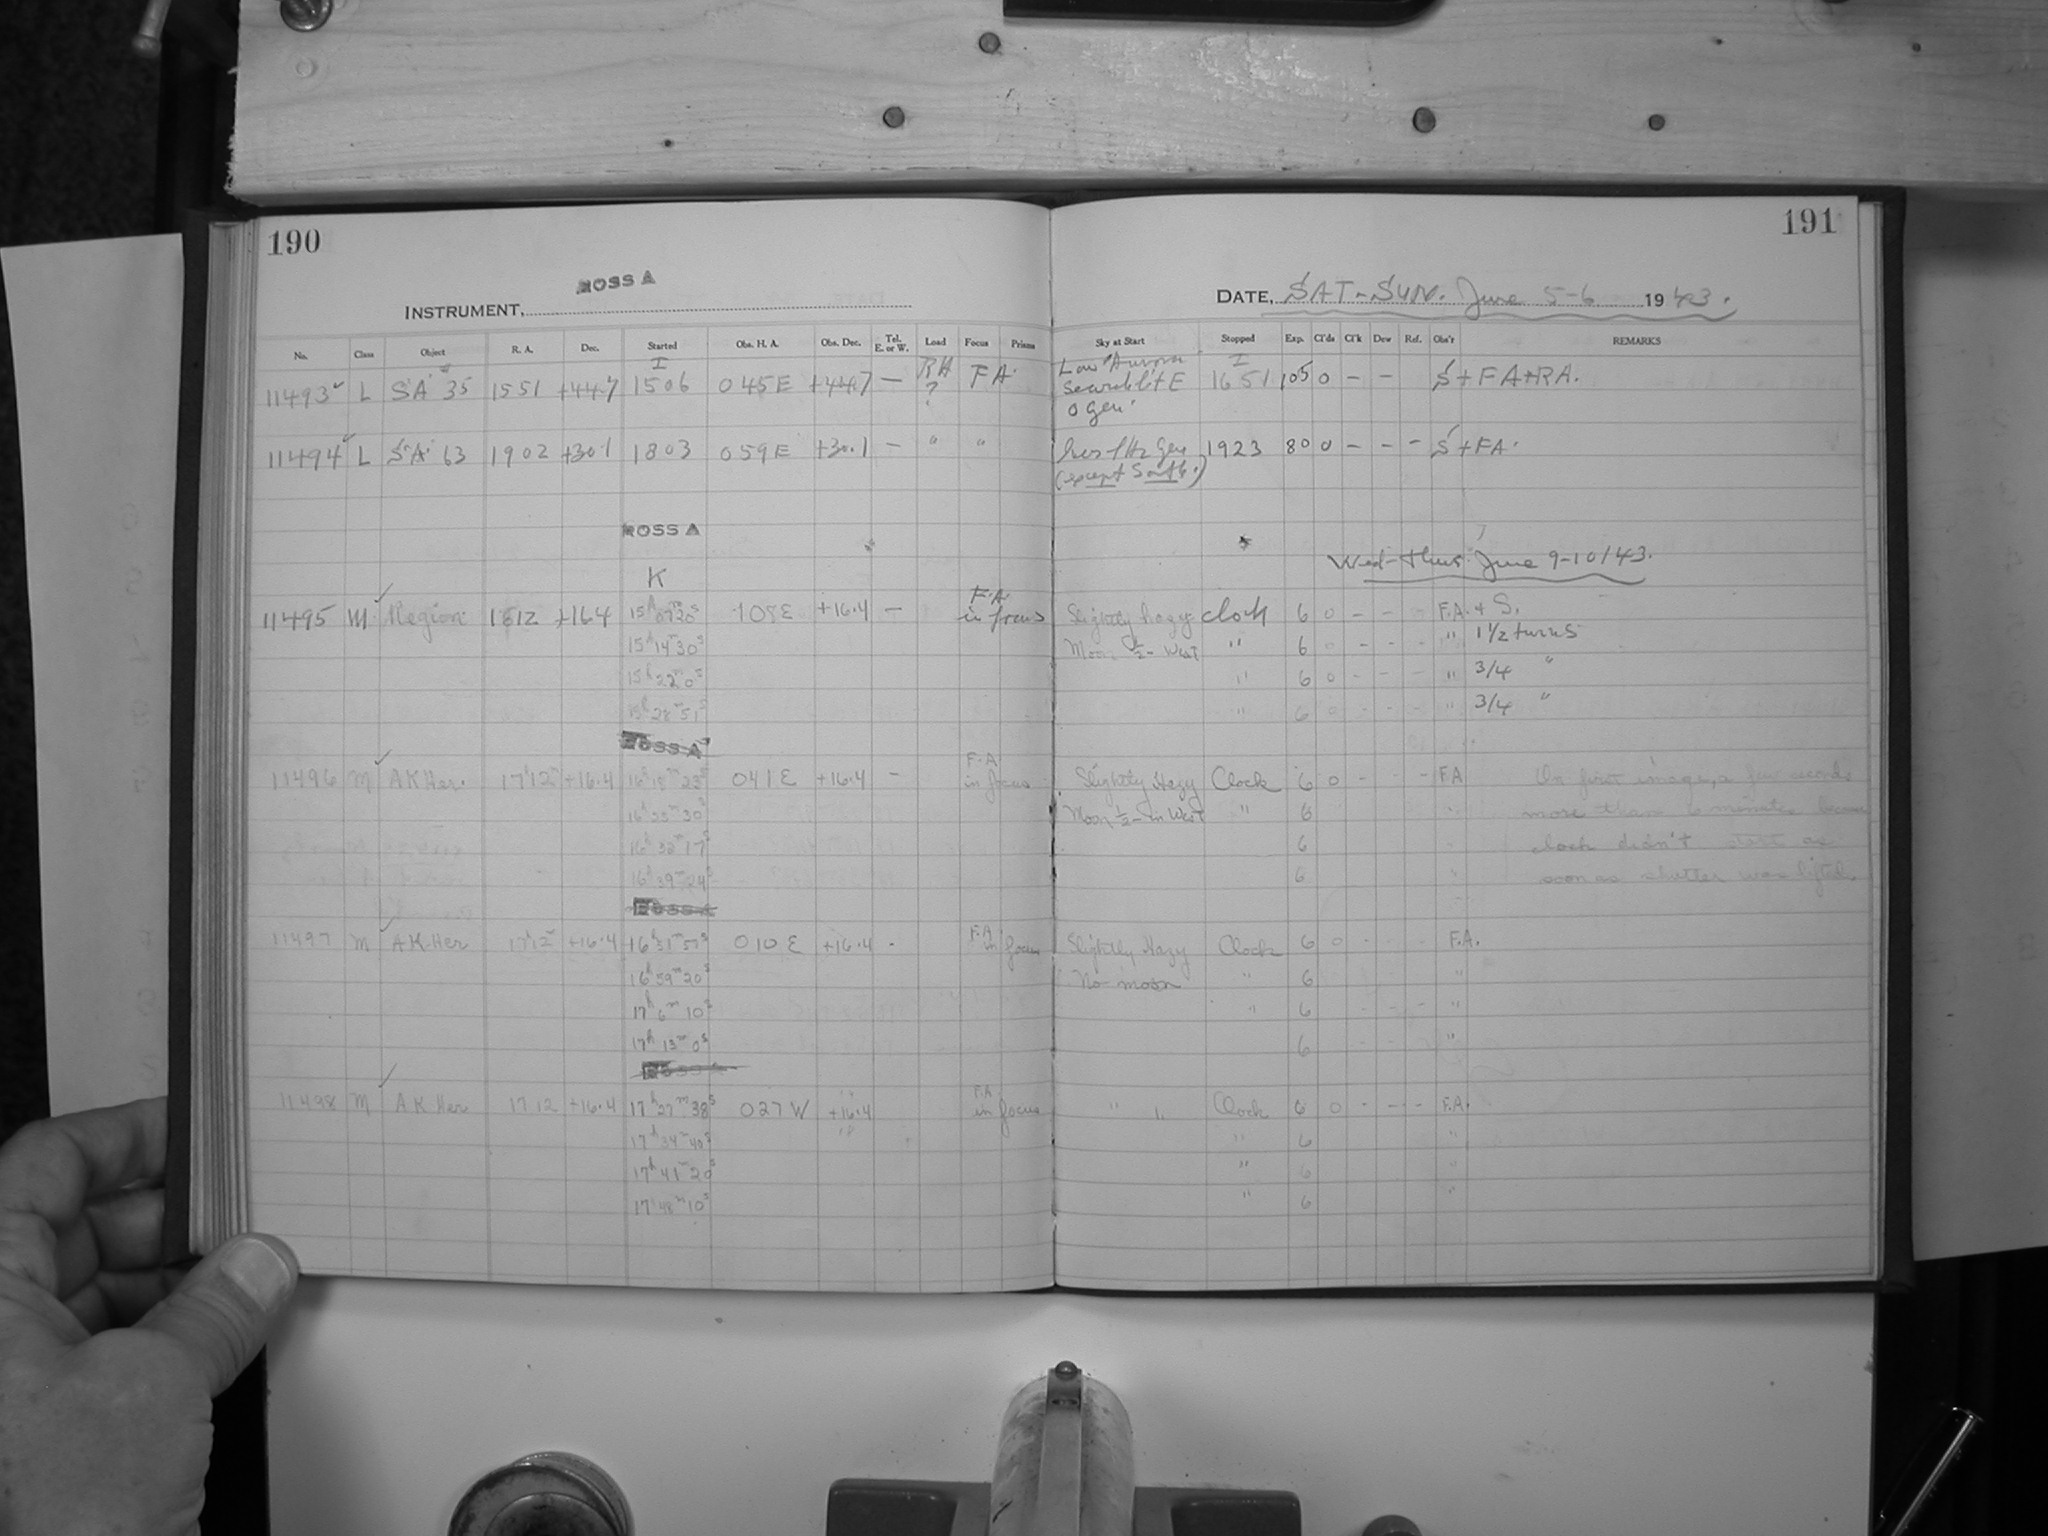 190
191
ROSS A
INSTRUMENT,
DATE, SAT-SUN. June 5-6 1943.
No. Class Object R. A. Dec. Started Obs. H. A. Obs. Dec. Tel. E. or W. Load Focus Prisms Sky at Start Stopped Exp. Cl'ds Cl'k Dew Ref. Obs'r REMARKS
I RH Low Aurora I
11493 L SA 35 1551 +44.7 1506 045E +44.7 — ? FA. E 1651 105 0 - - S + FA+RA.
0 gen.
11494 L SA 63 1902 +30.1 1803 059E +30.1 — " " 1923 80 0 - - - S + FA.
(except South.)
ROSS A
Wed-Thurs June 9-10/43.
K F.A.
11495 M Region 1612 +16.4 15h 07m 20s 108E +16.4 — in focus Slightly hazy clock 6 0 - - F.A. + S.
15h 14m 30s Moon ½- West " 6 0 - - - " 1 1/2 turns
15h 22m 0s " 6 0 - - - " 3/4 "
15h 28m 51s " 6 0 - - - " 3/4 "
ROSS A
F.A
11496 M AK Her. 17h 12m +16.4 16h 18m 23s 041E +16.4 - in focus Slightly Hazy Clock 6 0 - - - F.A On first image, a few seconds
16h 25m 30s Moon ½- in West " 6 " more than 6 minutes because
16h 32m 17s 6 " clock didn't start as
16h 39m 24s 6 " soon as shutter was lifted
ROSS A
F.A.
11497 M AK Her 17h 12m +16.4 16h 51m 57s 010E +16.4 - in focus Slightly Hazy Clock 6 0 - - F.A.
16h 59m 20s No moon " 6 "
17h 6m 10s " 6 - - - "
17h 13m 0s 6 - - "
ROSS A
F.A
11498 M AK Her 17 12 +16.4 17h 27m 38s 027W +16.4 in focus " " Clock 6 0 - - - F.A.
17h 34m 40s " 6 "
17h 41m 20s " 6 "
17h 48m 10s " 6 "